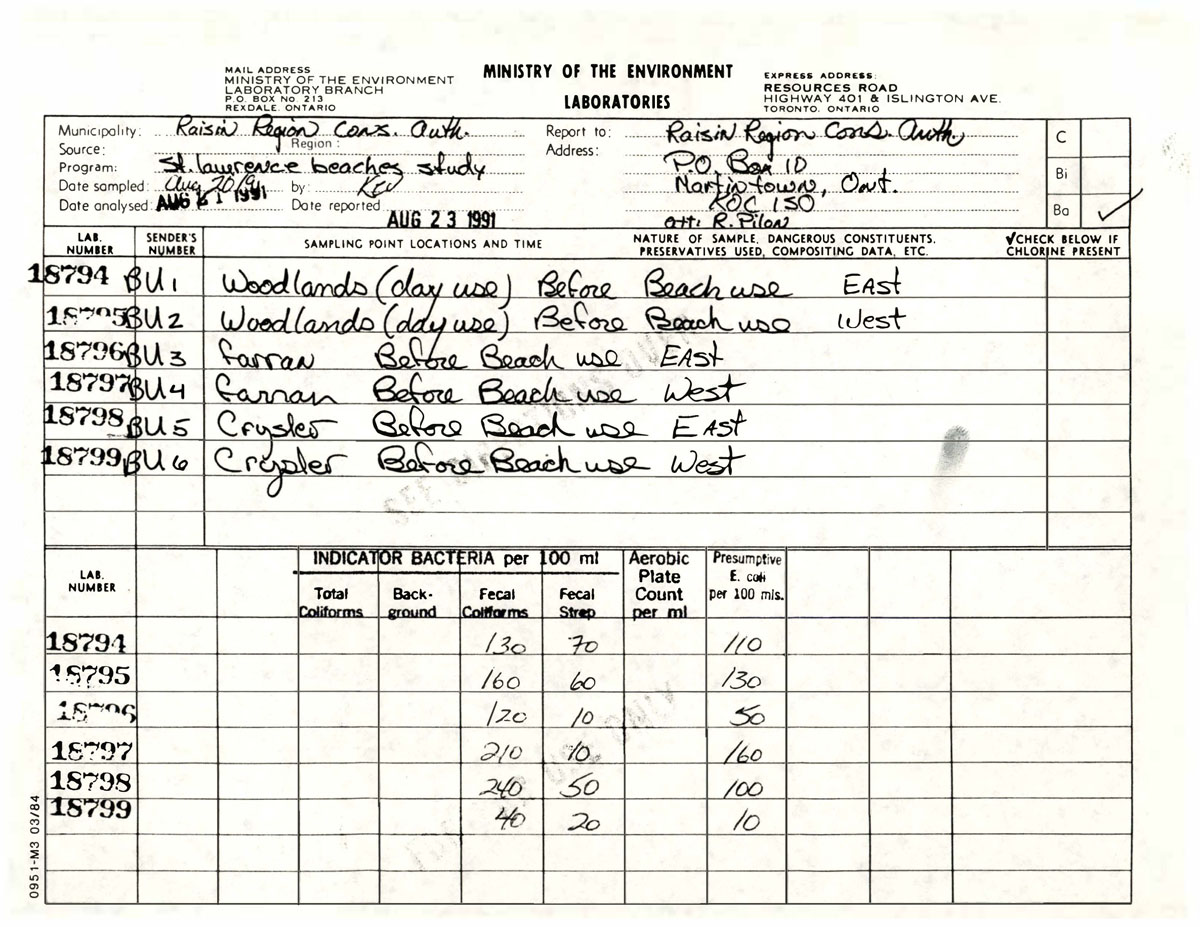 MAIL ADDRESS
MINISTRY OF THE ENVIRONMENT
LABORATORY BRANCH
P.O. BOX No. 213
REXDALE, ONTARIO
MINISTRY OF THE ENVIRONMENT
LABORATORIES
EXPRESS ADDRESS:
RESOURCES ROAD
HIGHWAY 401 & ISLINGTON AVE.
TORONTO. ONTARIO
Municipality: Raisin Region Cons. Auth.
Source: Region:
Program: St. lawrence beaches study
Date sampled: Aug 20/91 by: Kev
Date analysed: AUG 21 1991 Date reported AUG 23 1991
Report to: Raisin Region Cons. Auth.
Address: P.O. Box 10
Martintown, Ont.
K0C 1S0
att: R. Pilon
C
Bi
Ba ✓
LAB. NUMBER SENDER'S NUMBER SAMPLING POINT LOCATIONS AND TIME NATURE OF SAMPLE, DANGEROUS CONSTITUENTS, PRESERVATIVES USED, COMPOSITING DATA, ETC. ✓CHECK BELOW IF CHLORINE PRESENT
18794 BU1 Woodlands (day use) Before Beach use EAST
18795 BU2 Woodlands (day use) Before Beach use West
18796 BU3 Farran Before Beach use EAST
18797 BU4 Farran Before Beach use West
18798 BU5 Crysler Before Beach use EAST
18799 BU6 Crysler Before Beach use West
INDICATOR BACTERIA per 100 ml
LAB. NUMBER Total Coliforms Back-ground Fecal Coliforms Fecal Strep Aerobic Plate Count per ml Presumptive E. coli per 100 mls.
18794 130 70 110
18795 160 60 130
18796 120 10 50
18797 210 10 160
18798 240 50 100
18799 40 20 10
0951-M3 03/84